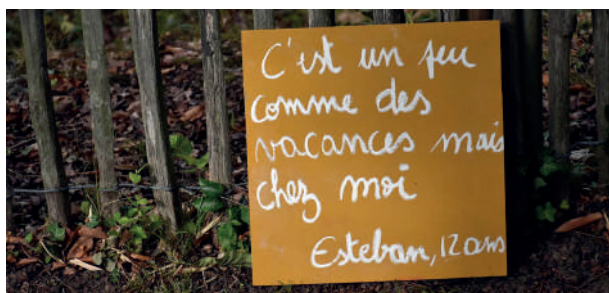 C'est un peu
comme des
vacances mais
chez moi
Esteban, 12 ans